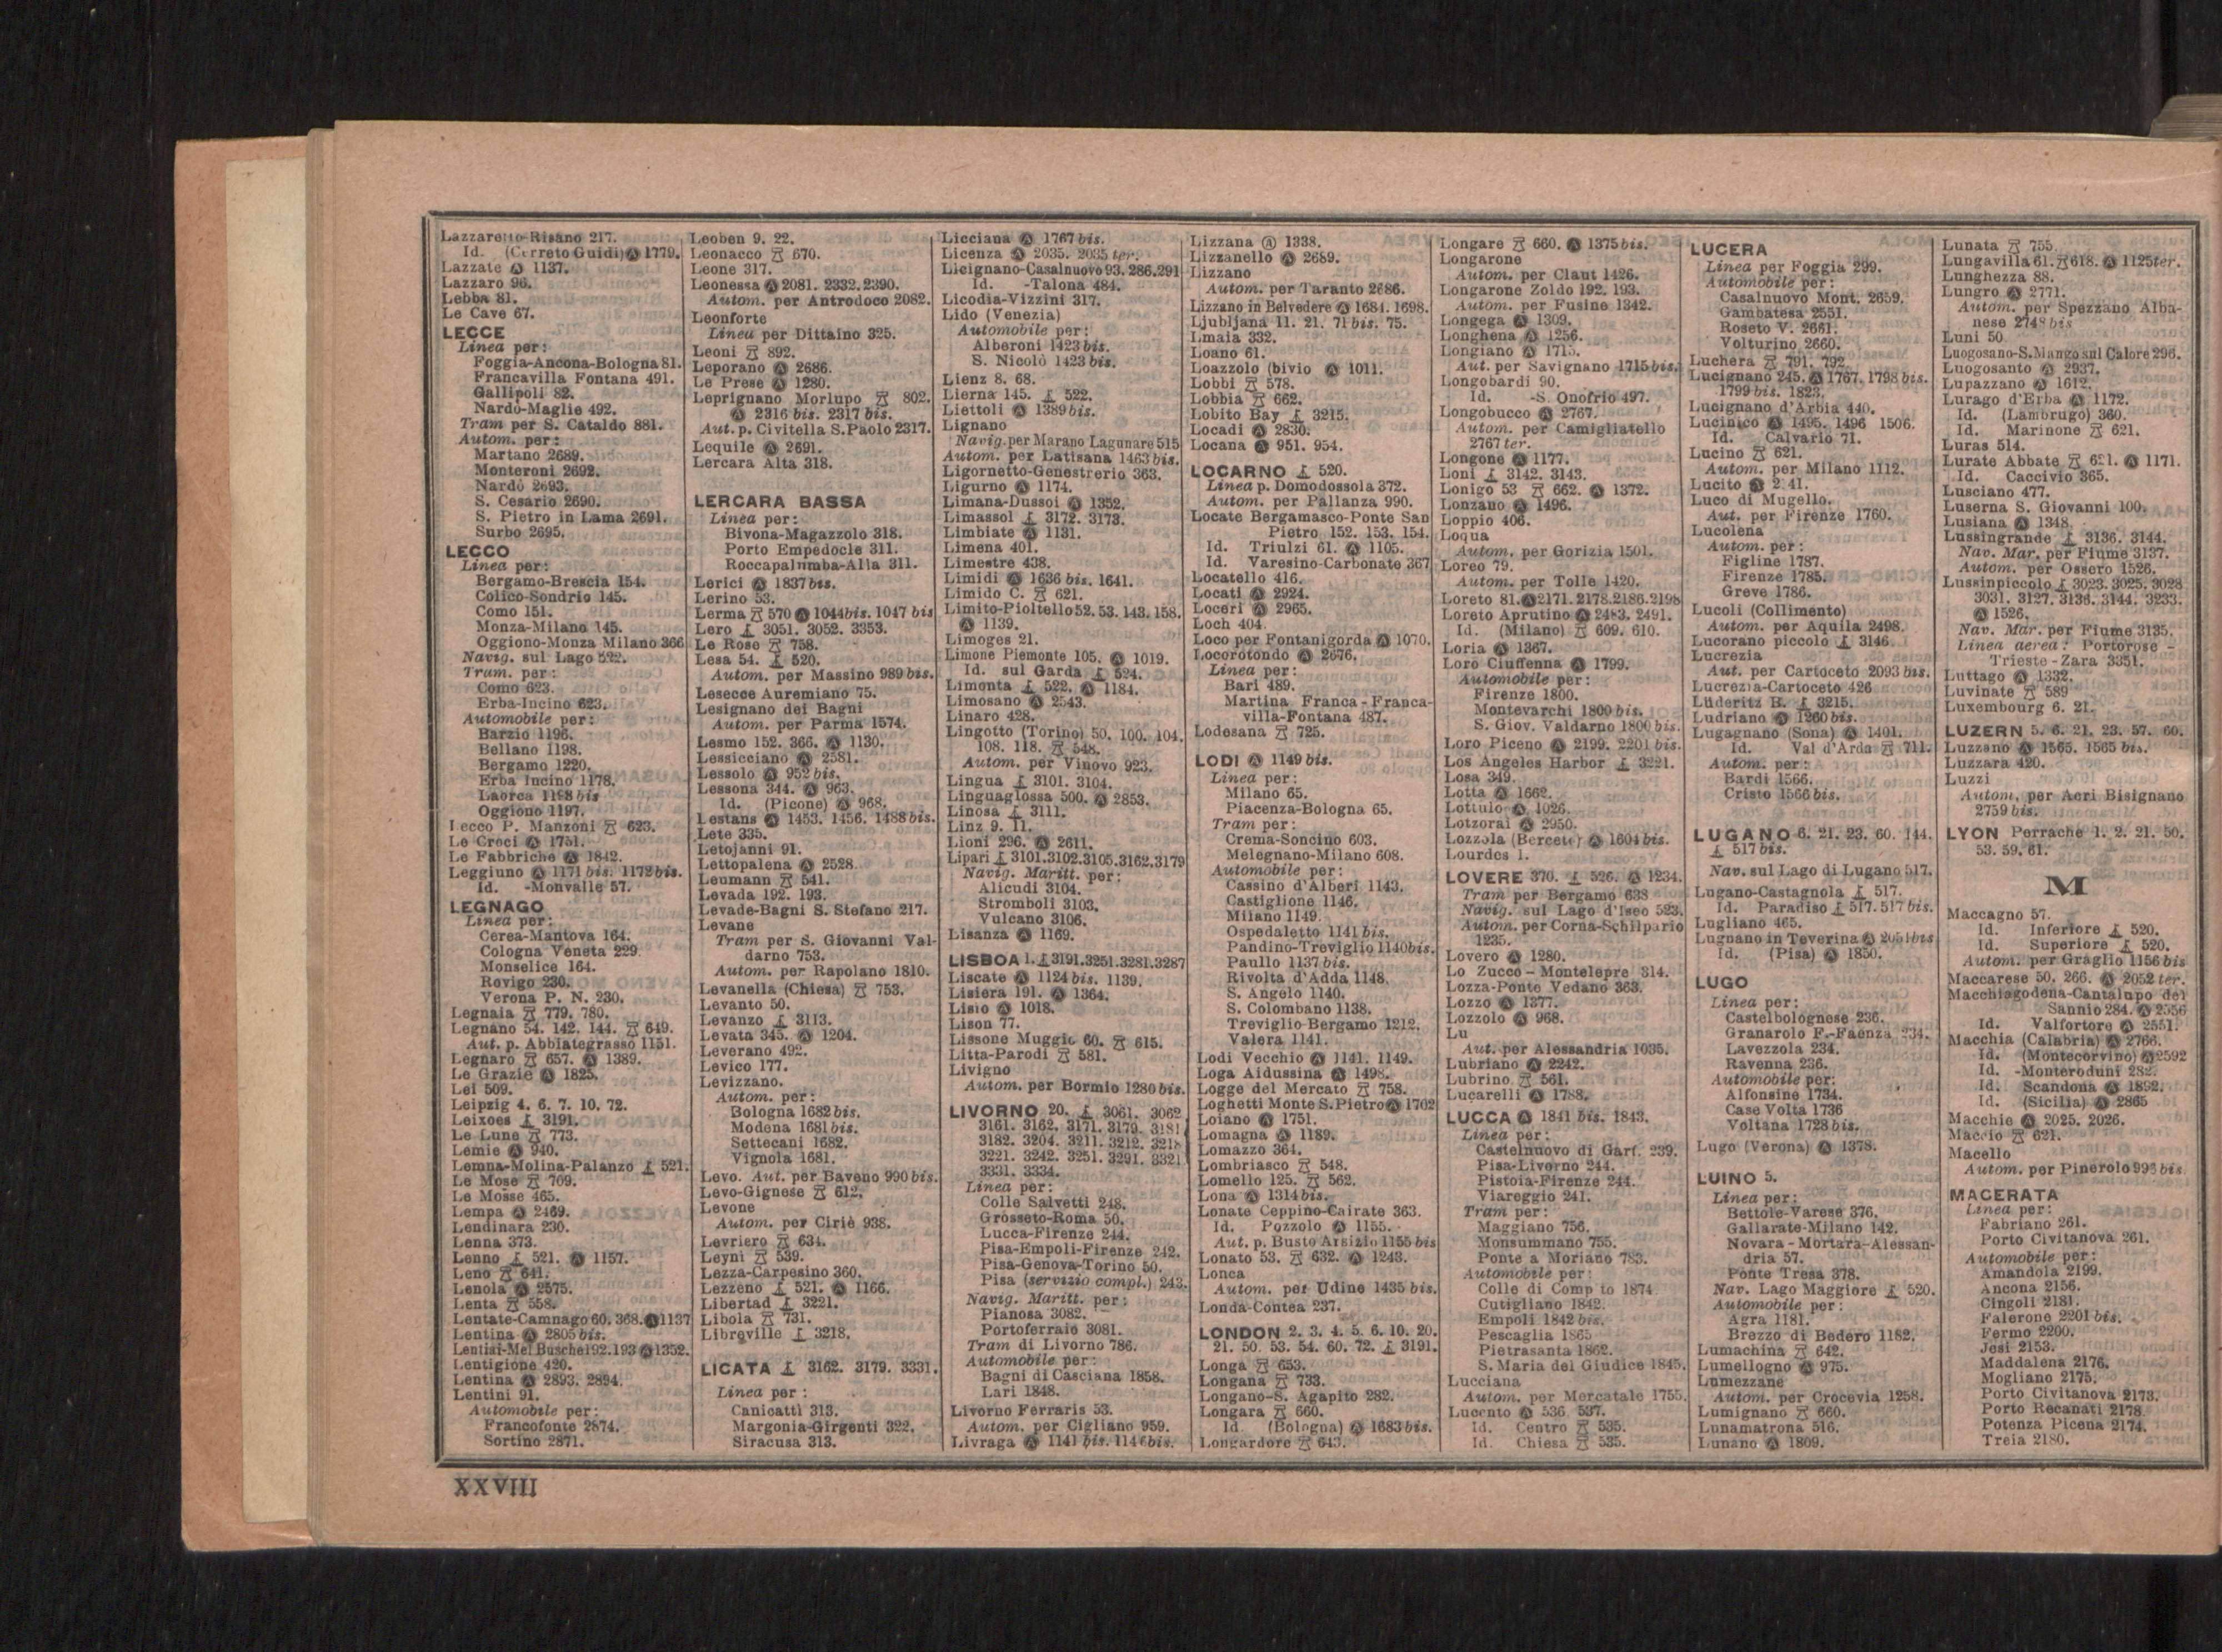 Lazzaretto-Risano 217.
Id. (Cerreto Guidi) Ⓐ 1779.
Lazzate Ⓐ 1137.
Lazzaro 96.
Lebba 81.
Le Cave 67.
LECCE
Linea per:
Foggia-Ancona-Bologna 81.
Francavilla Fontana 491.
Gallipoli 82.
Nardò-Maglie 492.
Tram per S. Cataldo 881.
Autom. per:
Martano 2689.
Monteroni 2692.
Nardò 2693.
S. Cesario 2690.
S. Pietro in Lama 2691.
Surbo 2695.
LECCO
Linea per:
Bergamo-Brescia 154.
Colico-Sondrio 145.
Como 151.
Monza-Milano 145.
Oggiono-Monza Milano 366
Navig. sul Lago 522.
Tram. per:
Como 623.
Erba-Incino 623.
Automobile per:
Barzio 1196.
Bellano 1198.
Bergamo 1220.
Erba Incino 1178.
Laorca 1198 bis
Oggiono 1197.
Lecco P. Manzoni 623.
Le Croci Ⓐ 1751.
Le Fabbriche Ⓐ 1842.
Leggiuno Ⓐ 1171 bis. 1172 bis.
Id. -Monvalle 57.
LEGNAGO
Linea per:
Cerea-Mantova 164.
Cologna Veneta 229.
Monselice 164.
Rovigo 230.
Verona P. N. 230.
Legnaia 779. 780.
Legnano 54. 142. 144. 649.
Aut. p. Abbiategrasso 1151.
Legnaro 657. Ⓐ 1389.
Le Grazie Ⓐ 1825.
Lei 509.
Leipzig 4. 6. 7. 10. 72.
Leixoes 3191.
Le Lune 773.
Lemie Ⓐ 940.
Lemna-Molina-Palanzo 521.
Le Mose 709.
Le Mosse 465.
Lempa Ⓐ 2469.
Lendinara 230.
Lenna 373.
Lenno 521. Ⓐ 1157.
Leno 641.
Lenola Ⓐ 2575.
Lenta 558.
Lentate-Camnago 60. 368. Ⓐ 1137
Lentina Ⓐ 2805 bis.
Lentiai-Mel Busche 192. 193 Ⓐ 1352.
Lentigione 420.
Lentina Ⓐ 2893. 2894.
Lentini 91.
Automobile per:
Francofonte 2874.
Sortino 2871.
Leoben 9. 22.
Leonacco 670.
Leone 317.
Leonessa Ⓐ 2081. 2332. 2390.
Autom. per Antrodoco 2082.
Leonforte
Linea per Dittaino 325.
Leoni 892.
Leporano Ⓐ 2686.
Le Prese Ⓐ 1280.
Leprignano Morlupo 802.
Ⓐ 2316 bis. 2317 bis.
Aut. p. Civitella S. Paolo 2317.
Lequile Ⓐ 2691.
Lercara Alta 318.
LERCARA BASSA
Linea per:
Bivona-Magazzolo 318.
Porto Empedocle 311.
Roccapalumba-Alia 311.
Lerici Ⓐ 1837 bis.
Lerino 53.
Lerma 570 Ⓐ 1044 bis. 1047 bis
Lero 3051. 3052. 3353.
Le Rose 758.
Lesa 54. 520.
Autom. per Massino 989 bis.
Lesecce Auremiano 75.
Lesignano dei Bagni
Autom. per Parma 1574.
Lesmo 152. 366. Ⓐ 1130.
Lessicciano Ⓐ 2581.
Lessolo Ⓐ 952 bis.
Lessona 344. Ⓐ 963.
Id. (Picone) Ⓐ 968.
Lestans Ⓐ 1453. 1456. 1488 bis.
Lete 335.
Letojanni 91.
Lettopalena Ⓐ 2528.
Leumann 541.
Levada 192. 193.
Levade-Bagni S. Stefano 217.
Levane
Tram per S. Giovanni Val-
darno 753.
Autom. per Rapolano 1810.
Levanella (Chiesa) 753.
Levanto 50.
Levanzo 3113.
Levata 345. Ⓐ 1204.
Leverano 492.
Levico 177.
Levizzano.
Autom. per:
Bologna 1682 bis.
Modena 1681 bis.
Settecani 1682.
Vignola 1681.
Levo. Aut. per Baveno 990 bis.
Levo-Gignese 612.
Levone
Autom. per Ciriè 938.
Levriero 634.
Leyni 539.
Lezza-Carpesino 360.
Lezzeno 521. Ⓐ 1166.
Libertad 3221.
Libola 731.
Libreville 3218.
LICATA 3162. 3179. 3331.
Linea per:
Canicattì 313.
Margonia-Girgenti 322.
Siracusa 313.
Licciana Ⓐ 1767 bis.
Licenza Ⓐ 2035. 2035 ter.
Licignano-Casalnuovo 93. 286. 291
Id. -Talona 484.
Licodia-Vizzini 317.
Lido (Venezia)
Automobile per:
Alberoni 1423 bis.
S. Nicolò 1423 bis.
Lienz 8. 68.
Lierna 145. 522.
Liettoli Ⓐ 1389 bis.
Lignano
Navig. per Marano Lagunare 515
Autom. per Latisana 1463 bis.
Ligornetto-Genestrerio 363.
Ligurno Ⓐ 1174.
Limana-Dussoi Ⓐ 1352.
Limassol 3172. 3173.
Limbiate Ⓐ 1131.
Limena 401.
Limestre 438.
Limidi Ⓐ 1636 bis. 1641.
Limido C. 621.
Limito-Pioltello 52. 53. 143. 158.
Ⓐ 1139.
Limoges 21.
Limone Piemonte 105. Ⓐ 1019.
Id. sul Garda 524.
Limonta 522. Ⓐ 1184.
Limosano Ⓐ 2543.
Linaro 428.
Lingotto (Torino) 50. 100. 104.
108. 118. 548.
Autom. per Vinovo 923.
Lingua 3101. 3104.
Linguaglossa 500. Ⓐ 2853.
Linosa 3111.
Linz 9. 11.
Lioni 296. Ⓐ 2611.
Lipari 3101. 3102. 3105. 3162. 3179
Navig. Maritt. per:
Alicudi 3104.
Stromboli 3103.
Vulcano 3106.
Lisanza Ⓐ 1169.
LISBOA 1. 3191. 3251. 3281. 3287
Liscate Ⓐ 1124 bis. 1139.
Lisiera 191. Ⓐ 1364.
Lisio Ⓐ 1018.
Lison 77.
Lissone Muggiò 60. 615.
Litta-Parodi 581.
Livigno
Autom. per Bormio 1280 bis.
LIVORNO 20. 3061. 3062
3161. 3162. 3171. 3179. 3181
3182. 3204. 3211. 3212. 3218
3221. 3242. 3251. 3291. 3321
3331. 3334.
Linea per:
Colle Salvetti 248.
Grosseto-Roma 50.
Lucca-Firenze 244.
Pisa-Empoli-Firenze 242.
Pisa-Genova-Torino 50.
Pisa (servizio compl.) 243.
Navig. Maritt. per:
Pianosa 3082.
Portoferraio 3081.
Tram di Livorno 786.
Automobile per:
Bagni di Casciana 1858.
Lari 1848.
Livorno Ferraris 53.
Autom. per Cigliano 959.
Livraga Ⓐ 1141 bis. 1146 bis.
Lizzana Ⓐ 1338.
Lizzanello Ⓐ 2689.
Lizzano
Autom. per Taranto 2686.
Lizzano in Belvedere Ⓐ 1684. 1698.
Ljubljana 11. 21. 71 bis. 75.
Lmaia 332.
Loano 61.
Loazzolo (bivio Ⓐ 1011.
Lobbi 578.
Lobbia 662.
Lobito Bay 3215.
Locadi Ⓐ 2830.
Locana Ⓐ 951. 954.
LOCARNO 520.
Linea p. Domodossola 372.
Autom. per Pallanza 990.
Locate Bergamasco-Ponte San
Pietro 152. 153. 154.
Id. Triulzi 61. Ⓐ 1105.
Id. Varesino-Carbonate 367
Locatello 416.
Locati Ⓐ 2924.
Loceri Ⓐ 2965.
Loch 404.
Loco per Fontanigorda Ⓐ 1070.
Locorotondo Ⓐ 2676.
Linea per:
Bari 489.
Martina Franca-Franca-
villa-Fontana 487.
Lodesana 725.
LODI Ⓐ 1149 bis.
Linea per:
Milano 65.
Piacenza-Bologna 65.
Tram per:
Crema-Soncino 603.
Melegnano-Milano 608.
Automobile per:
Cassino d'Alberi 1143.
Castiglione 1146.
Milano 1149.
Ospedaletto 1141 bis.
Pandino-Treviglio 1140 bis.
Paullo 1137 bis.
Rivolta d'Adda 1148.
S. Angelo 1140.
S. Colombano 1138.
Treviglio-Bergamo 1212.
Valera 1141.
Lodi Vecchio Ⓐ 1141. 1149.
Loga Aidussina Ⓐ 1498.
Logge del Mercato 758.
Loghetti Monte S. Pietro Ⓐ 1702
Loiano Ⓐ 1751.
Lomagna Ⓐ 1189.
Lomazzo 364.
Lombriasco 548.
Lomello 125. 562.
Lona Ⓐ 1314 bis.
Lonate Ceppino-Cairate 363.
Id. Pozzolo Ⓐ 1155.
Aut. p. Busto Arsizio 1155 bis
Lonato 53. 632. Ⓐ 1243.
Lonca
Autom. per Udine 1435 bis.
Londa-Contea 237.
LONDON 2. 3. 4. 5. 6. 10. 20.
21. 50. 53. 54. 60. 72. 3191.
Longa 653.
Longana 733.
Longano-S. Agapito 282.
Longara 660.
Id. (Bologna) Ⓐ 1683 bis.
Longardore 643.
Longare 660. Ⓐ 1375 bis.
Longarone
Autom. per Claut 1426.
Longarone Zoldo 192. 193.
Autom. per Fusine 1342.
Longega Ⓐ 1309.
Longhena Ⓐ 1256.
Longiano Ⓐ 1715.
Aut. per Savignano 1715 bis.
Longobardi 90.
Id. -S. Onofrio 497.
Longobucco Ⓐ 2767.
Autom. per Camigliatello
2767 ter.
Longone Ⓐ 1177.
Loni 3142. 3143.
Lonigo 53 662. Ⓐ 1372.
Lonzano Ⓐ 1496.
Loppio 406.
Loqua
Autom. per Gorizia 1501.
Loreo 79.
Autom. per Tolle 1420.
Loreto 81. Ⓐ 2171. 2178. 2186. 2198
Loreto Aprutino Ⓐ 2483. 2491.
Id. (Milano) 609. 610.
Loria Ⓐ 1367.
Loro Ciuffenna Ⓐ 1799.
Automobile per:
Firenze 1800.
Montevarchi 1800 bis.
S. Giov. Valdarno 1800 bis.
Loro Piceno Ⓐ 2199. 2201 bis.
Los Angeles Harbor 3221.
Losa 349.
Lotta Ⓐ 1662.
Lottulo Ⓐ 1026.
Lotzorai Ⓐ 2950.
Lozzola (Berceto) Ⓐ 1604 bis.
Lourdes 1.
LOVERE 370. 526. Ⓐ 1234.
Tram per Bergamo 638
Navig. sul Lago d'Iseo 523.
Autom. per Corna-Schilpario
1235.
Lovero Ⓐ 1280.
Lo Zucco-Montelepre 314.
Lozza-Ponte Vedano 363.
Lozzo Ⓐ 1377.
Lozzolo Ⓐ 968.
Lu
Aut. per Alessandria 1035.
Lubriano Ⓐ 2242.
Lubrino 561.
Lucarelli Ⓐ 1788.
LUCCA Ⓐ 1841 bis. 1843.
Linea per:
Castelnuovo di Garf. 239.
Pisa-Livorno 244.
Pistoia-Firenze 244.
Viareggio 241.
Tram per:
Maggiano 756.
Monsummano 755.
Ponte a Moriano 783.
Automobile per:
Colle di Comp to 1874.
Cutigliano 1842.
Empoli 1842 bis.
Pescaglia 1865
Pietrasanta 1862.
S. Maria del Giudice 1845.
Lucciana
Autom. per Mercatale 1755.
Lucento Ⓐ 536. 537.
Id. Centro 535.
Id. Chiesa 535.
LUCERA
Linea per Foggia 299.
Automobile per:
Casalnuovo Mont. 2659.
Gambatesa 2551.
Roseto V. 2661.
Volturino 2660.
Luchera 791. 792
Lucignano 245. Ⓐ 1767. 1798 bis.
1799 bis. 1823.
Lucignano d'Arbia 440.
Lucinico Ⓐ 1495. 1496 1506.
Id. Calvario 71.
Lucino 621.
Autom. per Milano 1112.
Lucito Ⓐ
Luco di Mugello.
Aut. per Firenze 1760.
Lucolena
Autom. per:
Figline 1787.
Firenze 1785.
Greve 1786.
Lucoli (Collimento)
Autom. per Aquila 2498.
Lucorano piccolo 3146
Lucrezia
Aut. per Cartoceto 2093 bis.
Lucrezia-Cartoceto 426
Lüderitz B. 3215.
Ludriano Ⓐ 1260 bis.
Lugagnano (Sona) Ⓐ 1401.
Id. Val d'Arda 711.
Autom. per:
Bardi 1566.
Cristo 1566 bis.
LUGANO 6. 21. 23. 60. 144.
517 bis.
Nav. sul Lago di Lugano 517.
Lugano-Castagnola 517.
Id. Paradiso 517. 517 bis.
Lugliano 465.
Lugnano in Teverina Ⓐ 2051 bis
Id. (Pisa) Ⓐ 1850.
LUGO
Linea per:
Castelbolognese 236.
Granarolo F.-Faenza 234.
Lavezzola 234.
Ravenna 236.
Automobile per:
Alfonsine 1734.
Case Volta 1736
Voltana 1728 bis.
Lugo (Verona) Ⓐ 1378.
LUINO 5.
Linea per:
Bettole-Varese 376.
Gallarate-Milano 142.
Novara-Mortara-Alessan-
dria 57.
Ponte Tresa 378.
Nav. Lago Maggiore 520.
Automobile per:
Agra 1181.
Brezzo di Bedero 1182.
Lumachina 642.
Lumellogno Ⓐ 975.
Lumezzane
Autom. per Crocevia 1258.
Lumignano 660.
Lunamatrona 516.
Lunano Ⓐ 1809.
Lunata 755.
Lungavilla 61. 618. Ⓐ 1125 ter.
Lunghezza 88.
Lungro Ⓐ 2771.
Autom. per Spezzano Alba-
nese 2748 bis
Luni 50
Luogosano-S. Mango sul Calore 296.
Luogosanto Ⓐ 2937.
Lupazzano Ⓐ 1612.
Lurago d'Erba Ⓐ 1172.
Id. (Lambrugo) 360.
Id. Marinone 621.
Luras 514.
Lurate Abbate 621. Ⓐ 1171.
Id. Caccivio 365.
Lusciano 477.
Luserna S. Giovanni 100.
Lusiana Ⓐ 1348.
Lussingrande 3136. 3144.
Nav. Mar. per Fiume 3137.
Autom. per Ossero 1526.
Lussinpiccolo 3023. 3025. 3028
3031. 3127. 3136. 3144. 3233.
Ⓐ 1526.
Nav. Mar. per Fiume 3135.
Linea aerea: Portorose -
Trieste-Zara 3351.
Luttago Ⓐ 1332.
Luvinate 589
Luxembourg 6. 21.
LUZERN 5. 6. 21. 23. 57. 60.
Luzzano Ⓐ 1565. 1565 bis.
Luzzara 420.
Luzzi
Autom. per Acri Bisignano
2759 bis.
LYON Perrache 1. 2. 21. 50.
53. 59. 61.
M
Maccagno 57.
Id. Inferiore 520.
Id. Superiore 520.
Autom. per Graglio 1156 bis
Maccarese 50. 266. Ⓐ 2052 ter.
Macchiagodena-Cantalupo del
Sannio 284. Ⓐ 2556
Id. Valfortore Ⓐ 2551.
Macchia (Calabria) Ⓐ 2766.
Id. (Montecorvino) Ⓐ 2592
Id. -Monteroduni 282.
Id. Scandona Ⓐ 1892.
Id. (Sicilia) Ⓐ 2865
Macchie Ⓐ 2025. 2026.
Maccio 621.
Macello
Autom. per Pinerolo 993 bis
MACERATA
Linea per:
Fabriano 261.
Porto Civitanova 261.
Automobile per:
Amandola 2199.
Ancona 2156.
Cingoli 2181.
Falerone 2201 bis.
Fermo 2200.
Jesi 2153.
Maddalena 2176.
Mogliano 2175.
Porto Civitanova 2173.
Porto Recanati 2178.
Potenza Picena 2174.
Treia 2180.
XXVIII